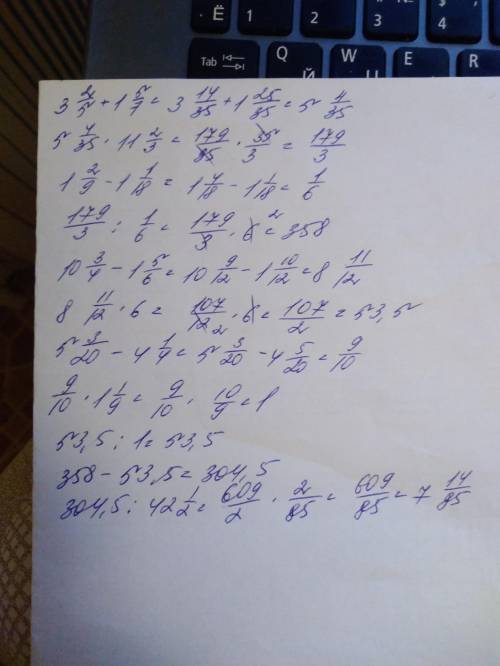 Ё ! 1 2 № 3 4
Tab Q Й W E R
3 2/5 + 1 5/7 = 3 14/35 + 1 25/35 = 5 4/35
5 4/35 · 11 2/3 = 179/35 · 35/3 = 179/3
1 2/9 - 1 1/18 = 1 4/18 - 1 1/18 = 1/6
179/3 : 1/6 = 179/3 · 6 2 = 358
10 3/4 - 1 5/6 = 10 9/12 - 1 10/12 = 8 11/12
8 11/12 · 6 = 107/12 2 · 6 = 107/2 = 53,5
5 3/20 - 4 1/4 = 5 3/20 - 4 5/20 = 9/10
9/10 · 1 1/9 = 9/10 · 10/9 = 1
53,5 : 1 = 53,5
358 - 53,5 = 304,5
304,5 : 42 1/2 = 609/2 · 2/85 = 609/85 = 7 14/85